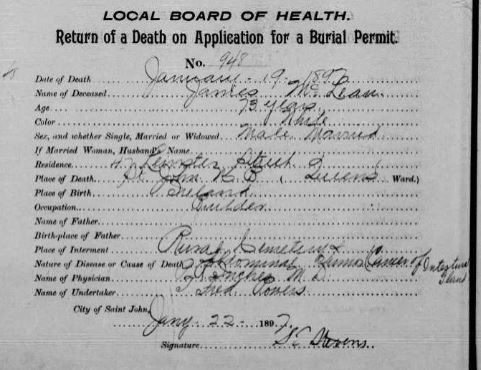 LOCAL BOARD OF HEALTH.
Return of a Death on Application for a Burial Permit.
No. 948
Date of Death January 19 1897
Name of Deceased James McLean
Age 73 years
Color White
Sex, and whether Single, Married or Widowed Male Married
If Married Woman, Husband's Name
Residence Leinster Street
Place of Death St. John N. B. ( Queens Ward.)
Place of Birth Ireland
Occupation Builder
Name of Father
Birth-place of Father
Place of Interment Rural Cemetery
Nature of Disease or Cause of Death Abdominal Cancer of
Name of Physician Inches M. D
Name of Undertaker Fred Powers
City of Saint John,
Jany. 22 1897.
Signature